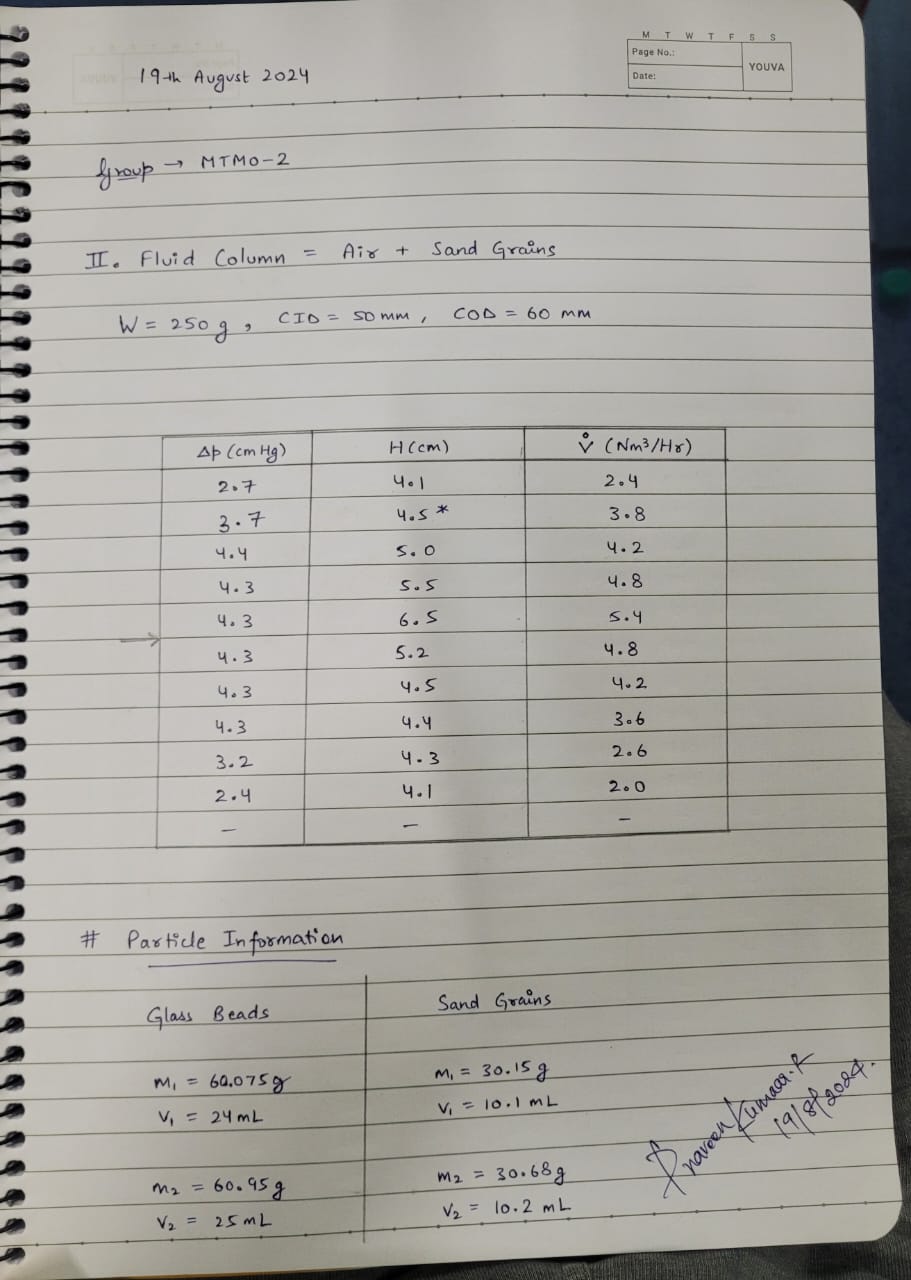 M T W T F S S
Page No.:
YOUVA
Date:
19th August 2024
Group → MTMO-2
II. Fluid Column = Air + Sand Grains
W = 250 g, CID = 50 mm, COD = 60 mm
Δp (cm Hg) H (cm) V̊ (Nm³/Hr)
2.7 4.1 2.4
3.7 4.5 * 3.8
4.4 5.0 4.2
4.3 5.5 4.8
4.3 6.5 5.4
→
4.3 5.2 4.8
4.3 4.5 4.2
4.3 4.4 3.6
3.2 4.3 2.6
2.4 4.1 2.0
– – –
# Particle Information
Glass Beads Sand Grains
m₁ = 60.075g m₁ = 30.15g
V₁ = 24 mL V₁ = 10.1 mL
m₂ = 60.95g m₂ = 30.68g
V₂ = 25 mL V₂ = 10.2 mL
Praveen Kumaar.R
19/8/2024.